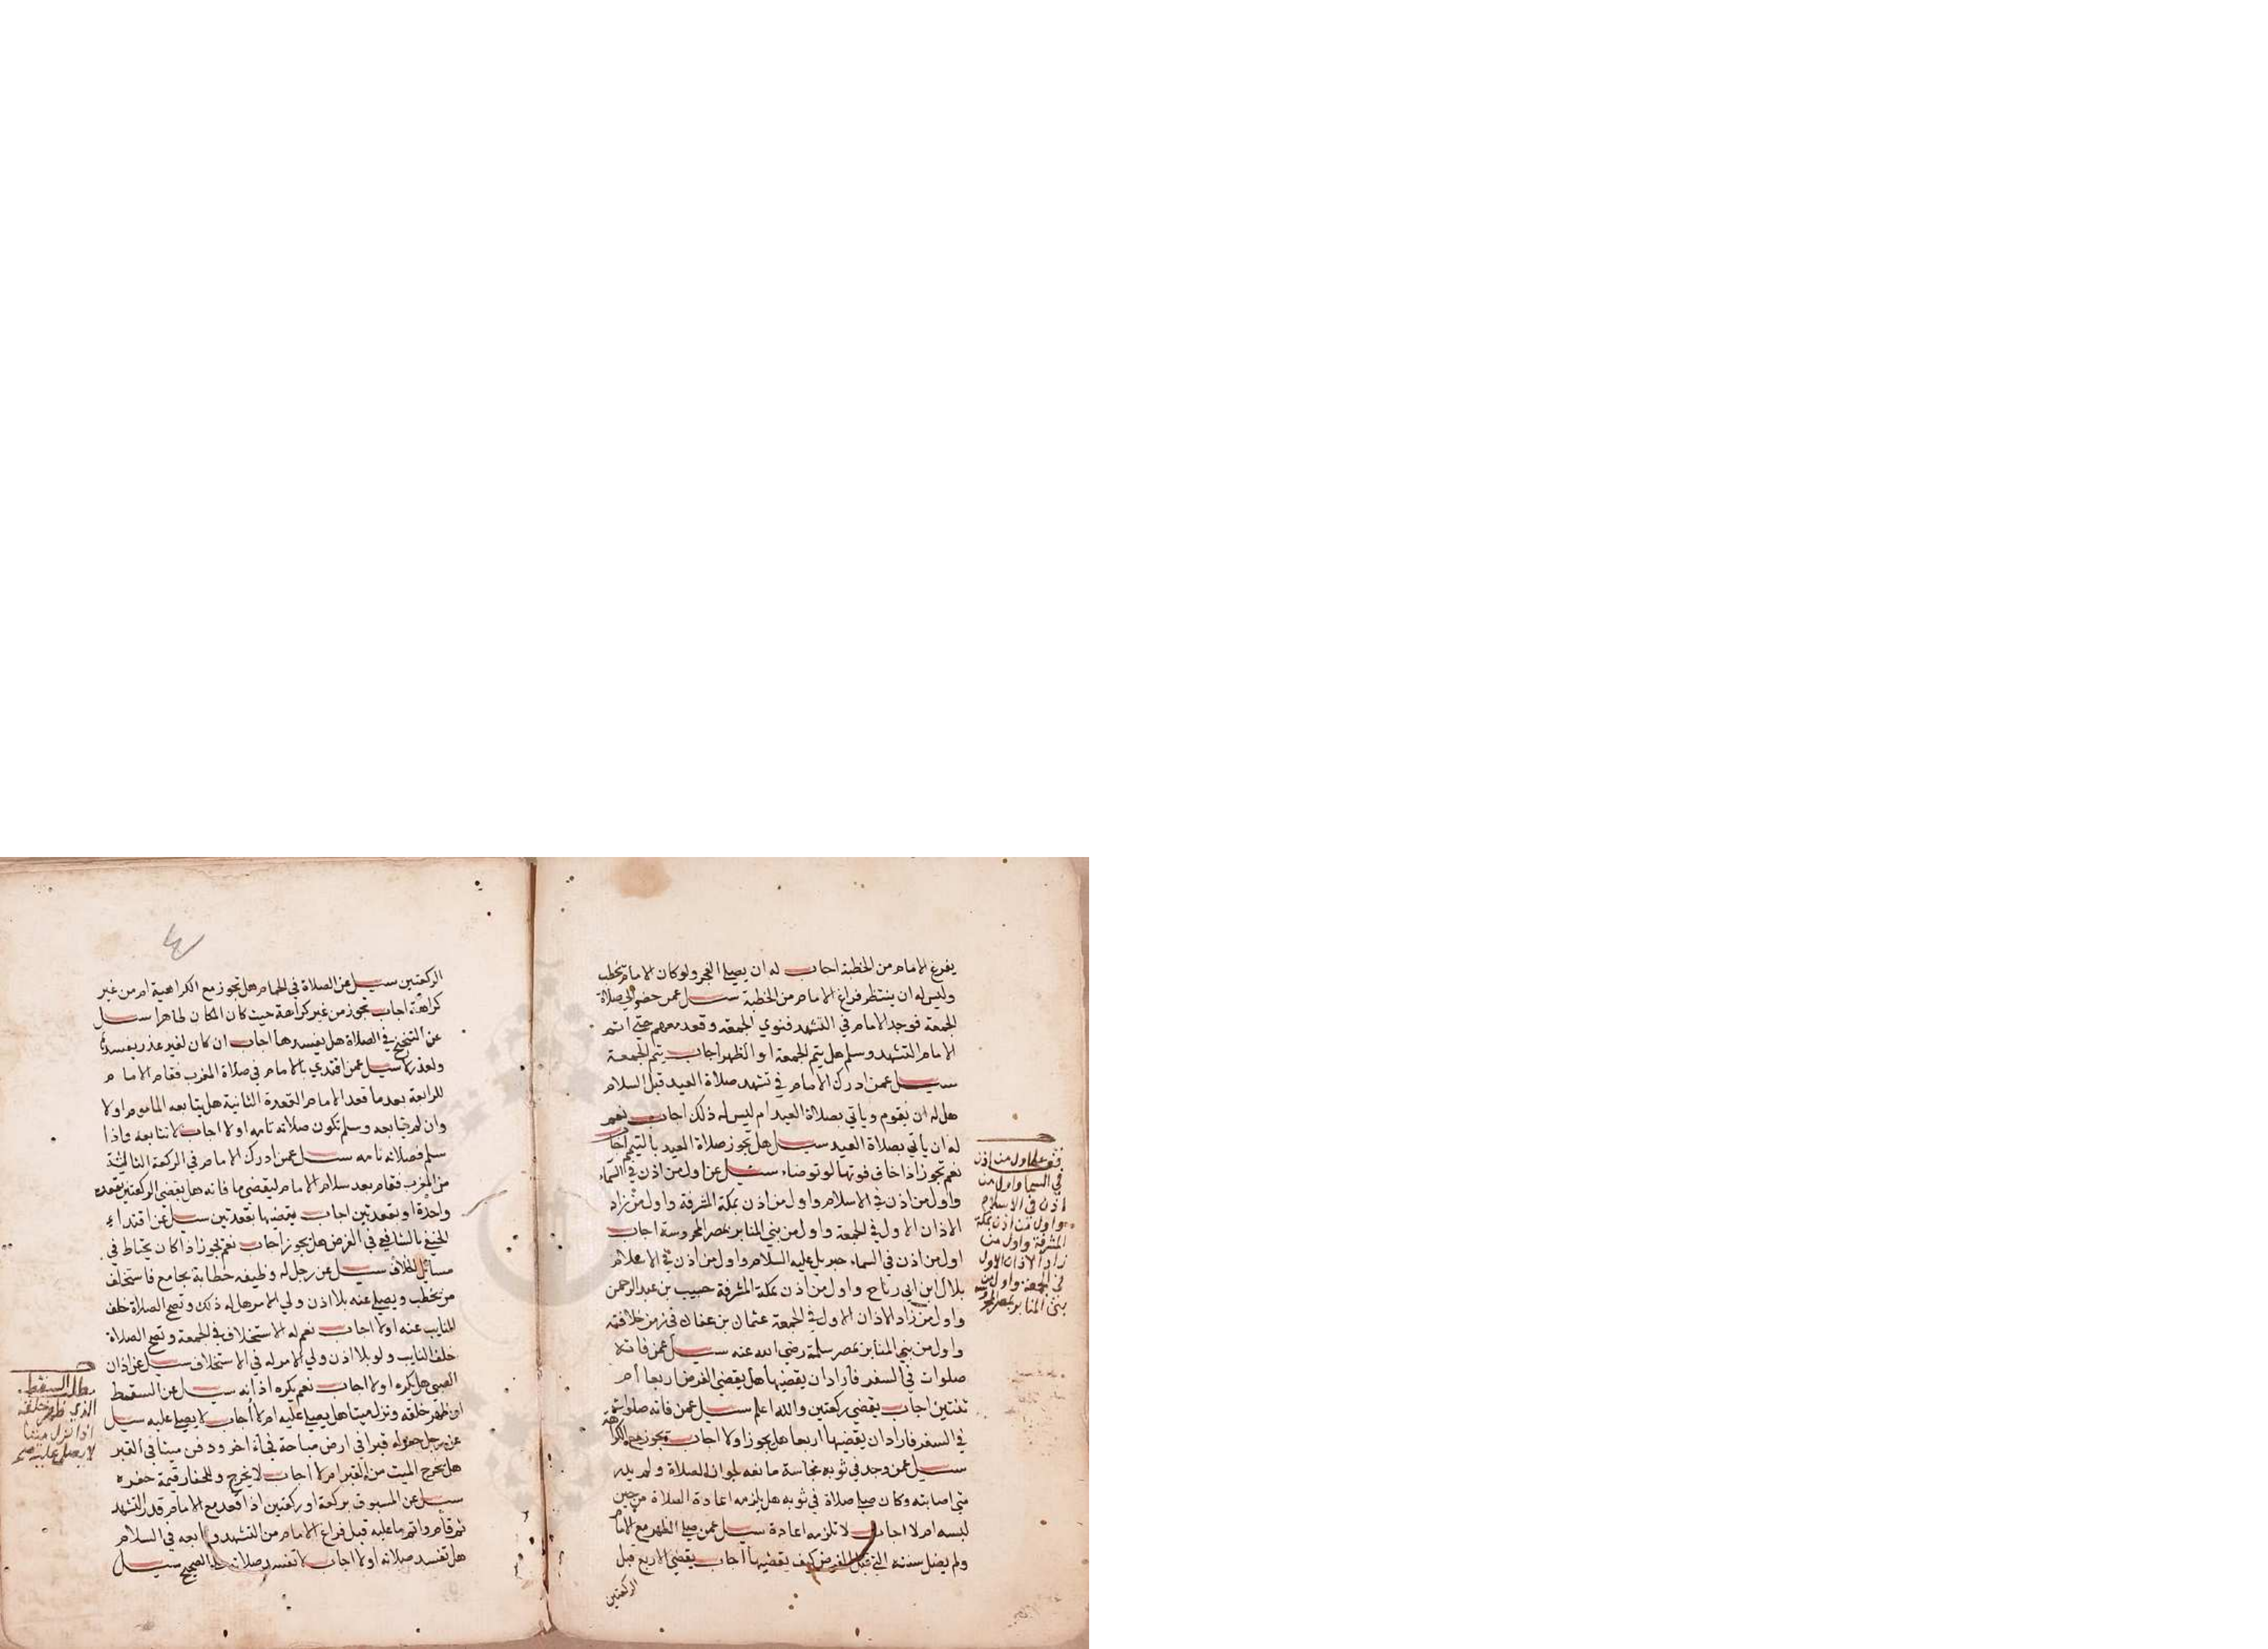 يفرغ الامام من الخطبة اجاب له ان يصلي الفجر ولو كان الامام يخطب
وليس له ان ينتظر فراغ الامام من الخطبة سيل عمن حضر الي صلاة
الجمعة فوجد الامام في التشهد فنوي الجمعه وقعد معهم حتي اتم
الامام التشهد وسلم هل يتم الجمعة او الظهر اجاب يتم الجمعة
سيل عمن ادرك الامام في تشهد صلاة العيد قبل السلام
هل له ان يقوم وياتي بصلاة العيد ام ليس له ذلك اجاب نعم
له ان ياتي بصلاة العيد سيل هل تجوز صلاة العيد بالتيمم اجاب
نعم تجوز اذا خاف فوتها لو توضاء سيل عن اول من اذن في السماء
واول من اذن في الاسلام واول من اذن بمكة المشرفة واول من زاد
الاذان الاول في الجمعة واول من بني المنابر بمصر المحروسة اجاب
اول من اذن في السماء جبريل عليه السلام واول من اذن في الاسلام
بلال ابن ابي رباح واول من اذن بمكة المشرفة حبيب بن عبد الرحمن
واول من زاد الاذان الاول في الجمعة عثمان بن عفان في زمن خلافته
واول من بني المنابر بمصر سلمة رضي الله عنه سيل عمن فاتته
صلوات في السفر فاراد ان يقضيها هل يقضي الفرض اربعا أم
ثنتين اجاب يقضي ركعتين والله اعلم سيل عمن فاته صلوات
في السفر فاراد ان يقضيها اربعا هل يجوز اولا اجاب يجوز مع الكراهة
سيل عمن وجد في ثوبه نجاسة مانعه لجواز الصلاة ولم يدر
متي اصابته وكان صلي صلاة في ثوبه هل يلزمه اعادة الصلاة من حين
لبسه ام لا اجاب لا تلزمه اعادة سيل عمن صلي الظهر مع الامام
ولم يصل سنته التي قبل الفرض كيف يقضيها اجاب يقضي الاربع قبل
الركعتين
قف علي اول من اذن
في السما واول من
اذن في الاسلام
واول من اذن بمكة
المشرفة واول من
زاد الاذان الاول
في الجمعة واول من
بني المنابر بمصر المحروسه
الركعتين سيل عن الصلاة في الحمام هل تجوز مع الكراهية ام من غير
كراهة اجاب تجوز من غير كراهة حيث كان المكان طاهرا سيل
عن التنحنح في الصلاة هل يفسدها اجاب ان كان لغير عذر يفسدها
ولعذر لا سيل عمن اقتدي بالامام في صلاة المغرب فقام الامام
للرابعة بعد ما قعد الامام القعدة الثانية هل يتابعه الماموم اولا
وان لم يتابعه وسلم تكون صلاته تامه اولا اجاب لا يتابعه واذا
سلم فصلاته تامه سيل عمن ادرك الامام في الركعة الثالثة
من المغرب فقام بعد سلام الامام ليقضي ما فاته هل يقضي الركعتين بقعدة
واحدة او بقعدتين اجاب يقضيها بقعدتين سيل عن اقتداء
الحنفي بالشافعي في الفرض هل يجوز اجاب نعم يجوز اذا كان يحتاط في
مسائل الخلاف سيل عن رجل له وظيفه خطابة بجامع فاستخلف
من يخطب ويصلي عنه بلا اذن ولي الامر هل له ذلك وتصح الصلاة خلف
النايب عنه اولا اجاب نعم له الاستخلاف في الجمعة وتصح الصلاة
خلف النايب ولو بلا اذن ولي الامر له في الاستخلاف سيل عن اذان
الصبي هل يكره اولا اجاب نعم يكره اذانه سيل عن السقط
ان ظهر خلقه ونزل ميتا هل يصلي عليه ام لا اجاب لا يصلي عليه سيل
عن رجل حفر له قبرا في ارض مباحة فجاء اخر ودفن ميتا في القبر
هل يخرج الميت من القبر ام لا اجاب لا يخرج وللحفار قيمة حفره
سيل عن المسبوق بركعة او ركعتين اذا قعد مع الامام قدر التشهد
ثم قام واتم ما عليه قبل فراغ الامام من التشهد وتابعه في السلام
هل تفسد صلاته اولا اجاب لا تفسد صلاته علي الصحيح سيل
مطلب السقط
الذي ظهر خلقه
اذا نزل ميتا
لا يصلي عليه